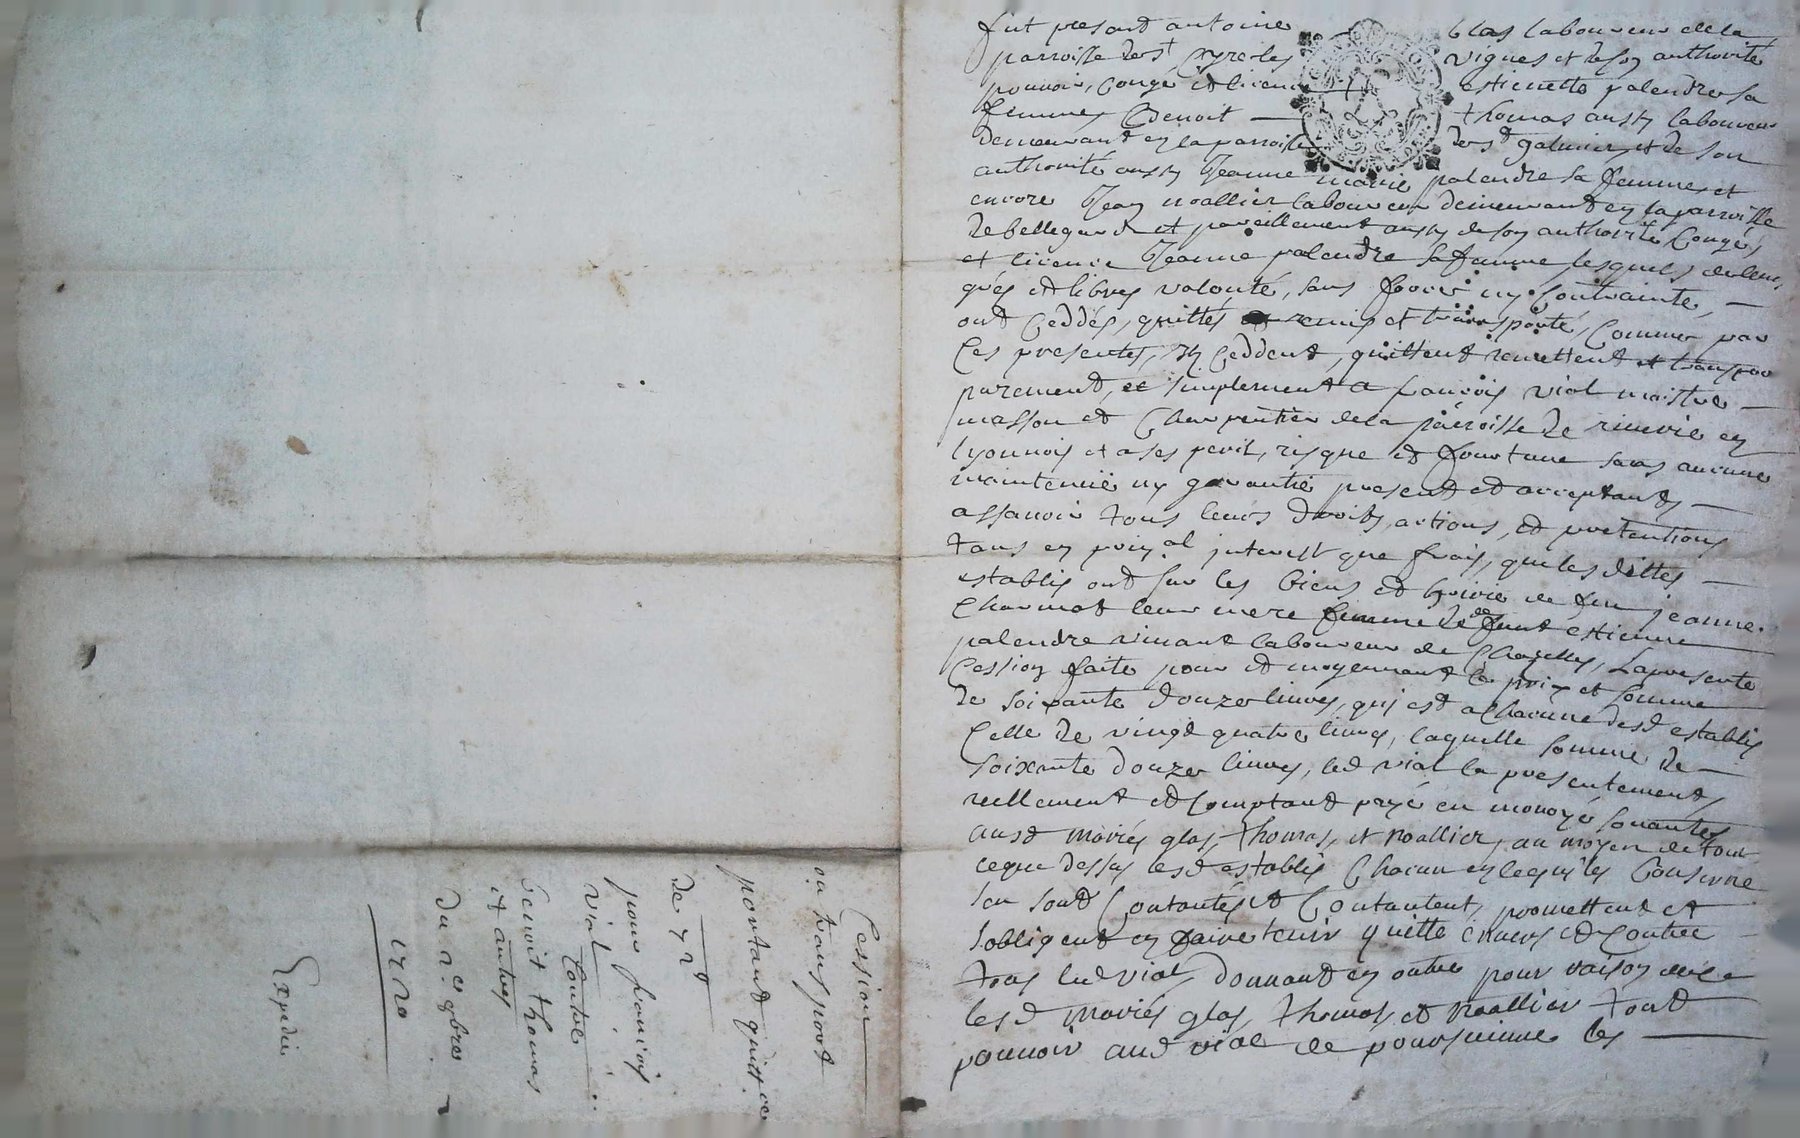 fut presant antoine glas laboureur de la
parroisse de st Cyre les vignes et de son authorité
pouuoir, congé et licence estiennette palendre sa
femme, Benoit thomas aussy laboureur
demeurant en la parroisse de st galmier et de son
authorité aussy Jeanne marie palendre sa femme et
encore Jean noallier laboureur demeurant en la parroisse
de bellegarde et pareillement aussy de son authorité Congé,
et licence Jeanne palendre sa femme lesquels de leur
grés et libres volonté, sans force ny Contrainte,
ont Ceddés, quittés remis et transporté, Comme par
Ces presentes, Ceddent, quittent remettent et transpor
purement, et simplement a francois vial maistre
masson et Charpentier de la parroisse de riuerie en
lyonnois et a ses peril, risque et fourtune sans aucune
maintenüe ny garantie present et acceptant,
assauoir tous leurs droits, actions, et pretentions
tans en prin.al interest que frais, que les dittes
establis ont sur les biens et hoirie de feu jeanne
Charmat leur mere femme de defunt estienne
palendre viuant laboureur de Chazelles, La presente
Cession faite pour et moyennant le prix et somme
de soixante douze liures, qui est a chacune desd establis
Celle de vingt quatre liures, laquelle somme de
soixante douze liures, led vial la presentement,
reellement et Comptant payé en monoye sonante
ausd mariés glas, thomas, et noallier, au moyen de tout
ceque dessus lesd establis Chacun en lequi les Conserne
sen sont Contantés et Contantent, promettent et
sobligent en faire tenir quitte enuers et Contre
tous led vial, donnant en outre pour raison de ce
lesd mariés glas, thomas et noallier tout
pouuoir aud vial de poursuiure les
Cession
ou transport
portant quitt.ce
de 72 lt
pour francois
vial
Contre
benoit thomas
et autres
du 2e 9bre
1720
Expedié